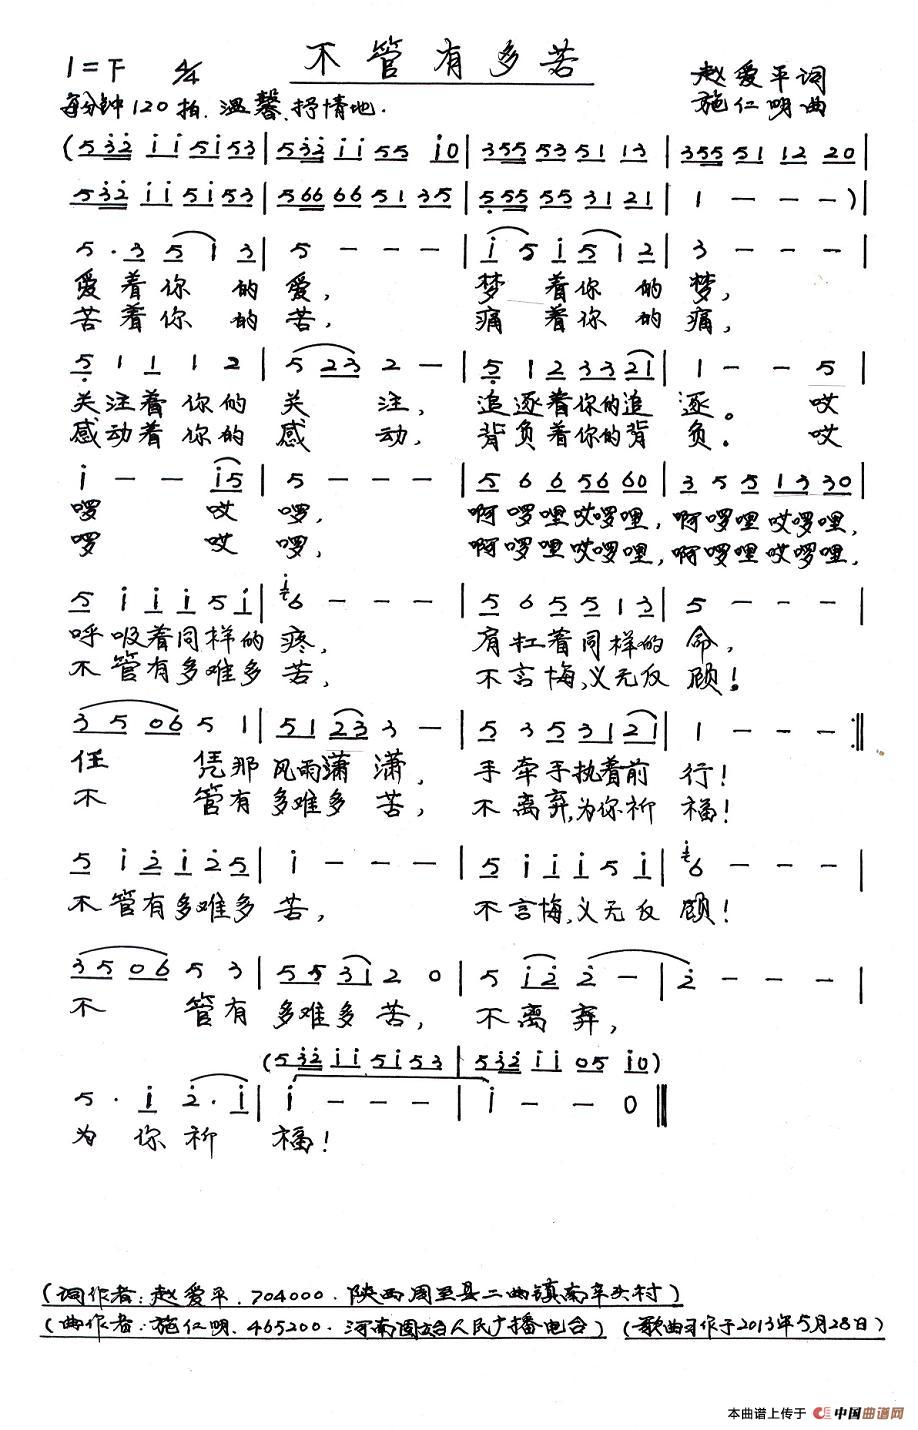 不管有多苦
1=F 4/4 赵爱平词
每分钟120拍.温馨、抒情地. 施仁明曲
(5 3̇2̇ i i 5 i 5 3 | 5 3̇2̇ i i 5 5 i 0 | 3 5 5 5 3 5 1 1 3 | 3 5 5 5 1 1 2 2 0 |
5 3̇2̇ i i 5 i 5 3 | 5 6 6 6 6 5 1 3 5 | 5̣ 5 5 5 5 3 1 2 1 | 1 — — —) |
5 · 3 5 1 3 | 5 — — — | i 5 i 5 1 2 | 3 — — — |
爱着你的爱, 梦着你的梦,
苦着你的苦, 痛着你的痛,
5̣ 1 1 1 2 | 5 2 3 2 — | 5̣ 1 2 3 3 2 1 | 1 — — 5 |
关注着你的关注, 追逐着你的追逐。哎
感动着你的感动, 背负着你的背负。哎
i — — i 5 | 5 — — — | 5 6 6 5 6 6 0 | 3 5 5 1 3 3 0 |
啰哎啰, 啊啰哩哎啰哩, 啊啰哩哎啰哩,
啰哎啰, 啊啰哩哎啰哩, 啊啰哩哎啰哩,
5 i i i 5 i | 6 — — — | 5 6 5 5 1 3 | 5 — — — |
呼吸着同样的疼, 肩扛着同样的命,
不管有多难多苦, 不言悔,义无反顾!
3 5 0 6 5 1 | 5 1 2 3 3 — | 5 3 5 3 1 2 1 | 1 — — — :‖
任凭那风雨潇潇, 手牵手执着前行!
不管有多难多苦, 不离弃,为你祈福!
5 i 2̇ i 2̇ 5 | i — — — | 5 i i i 5 i | 6 — — — |
不管有多难多苦, 不言悔,义无反顾!
3 5 0 6 5 3 | 5 5 3 1 2 0 | 5 i 2̇ 2̇ — | 2̇ — — — |
不管有多难多苦, 不离弃,
(5 3̇2̇ i i 5 i 5 3 | 5 3̇2̇ i i 0 5 i 0)
5 · i 2̇ · i | i — — — | i — — 0 ‖
为你祈福!
(词作者:赵爱平.704000.陕西周至县二曲镇南辛头村)
(曲作者:施仁明.465200.河南固始人民广播电台) (歌曲习作于2013年5月28日)
本曲谱上传于 中国曲谱网